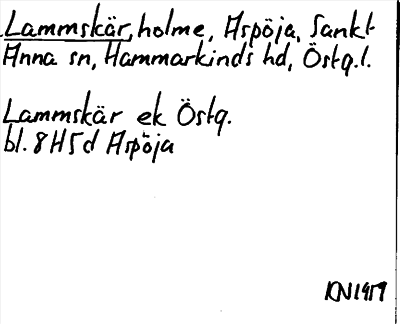 Lammskär, holme, Aspöja, Sankt
Anna sn, Hammarkinds hd, Östg.l.
Lammskär ek Östg.
bl. 8H5d Aspöja